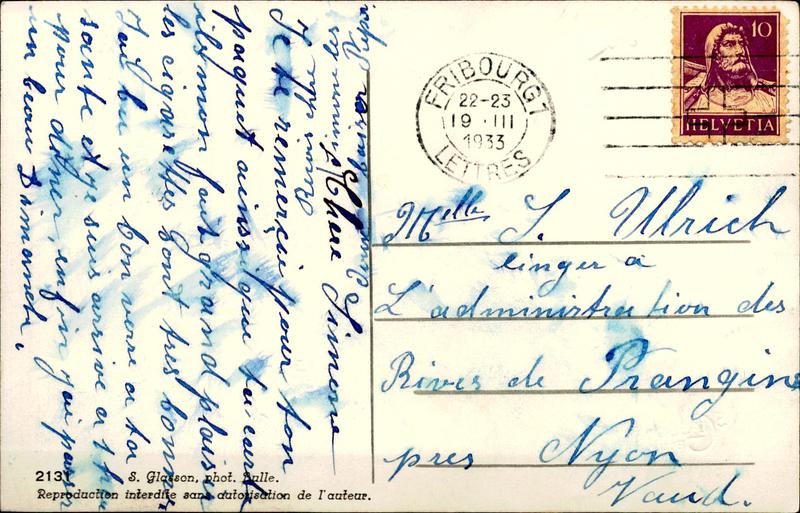 Chère Simone
Je te remercie pour ton
paquet ainsi que ta carte
ils mon fait grand plaisir
les cigarettes sont très bonne
J'ai bu un bon verre a ta
sante et je suis arrivé a
pour dîner, enfin j'ai passer
un beau Dimanche.
FRIBOURG 1
22-23
19 · III
1933
LETTRES
10
HELVETIA
Melle S. Ulrich
linger a
L'administration des
Rives de Prangins
près Nyon
Vaud.
2131 S. Glasson, phot. Bulle.
Reproduction interdite sans autorisation de l'auteur.